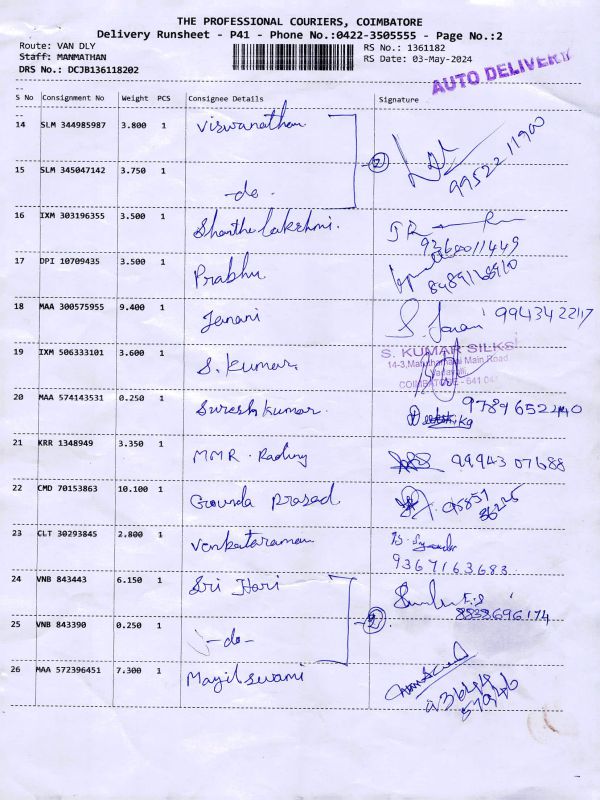 THE PROFESSIONAL COURIERS, COIMBATORE
Delivery Runsheet - P41 - Phone No.:0422-3505555 - Page No.:2
Route: VAN DLY
RS No.: 1361182
Staff: MANMATHAN
RS Date: 03-May-2024
DRS No.: DCJB136118202
AUTO DELIVERY
S No Consignment No Weight PCS Consignee Details Signature
14 SLM 344985987 3.800 1 Viswanathan
9952211900
15 SLM 345047142 3.750 1 -do- 2
16 IXM 303196355 3.500 1 Shanthelakshmi.
9360011449
17 DPI 10709435 3.500 1 Prabhu
18 MAA 300575955 9.400 1 Janani S. Janani
19 IXM 506333101 3.600 1 S. Kumar
S. KUMAR SILKS
Main Road
20 MAA 574143531 0.250 1 Sureshkumar.
21 KRR 1348949 3.350 1 MMR. 99943 07688
22 CMD 70153863 10.100 1 Gounda Prasad
23 CLT 30293845 2.800 1 Venkataraman
9367163683
24 VNB 843443 6.150 1 Sri Hari
8838696174
25 VNB 843390 0.250 1 -do- 2
26 MAA 572396451 7.300 1 Mayilswami